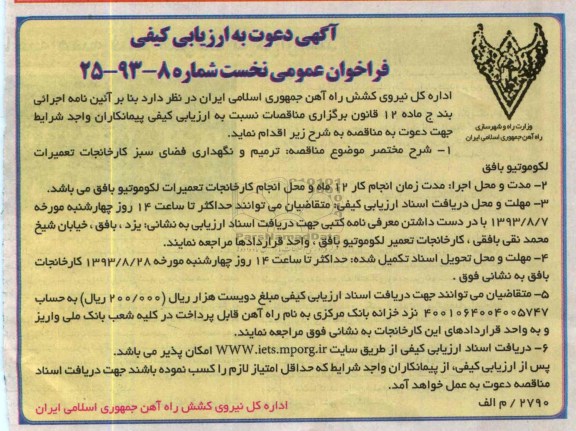 آگهی دعوت به ارزیابی کیفی
فراخوان عمومی نخست شماره ۸-۹۳-۲۵
وزارت راه و شهرسازی
راه آهن جمهوری اسلامی ایران
اداره کل نیروی کشش راه آهن جمهوری اسلامی ایران در نظر دارد بنا بر آئین نامه اجرائی
بند ج ماده ۱۲ قانون برگزاری مناقصات نسبت به ارزیابی کیفی پیمانکاران واجد شرایط
جهت دعوت به مناقصه به شرح زیر اقدام نماید.
۱- شرح مختصر موضوع مناقصه: ترمیم و نگهداری فضای سبز کارخانجات تعمیرات
لکوموتیو بافق
۲- مدت و محل اجرا: مدت زمان انجام کار ۱۲ ماه و محل انجام کارخانجات تعمیرات لکوموتیو بافق می باشد.
۳- مهلت و محل دریافت اسناد ارزیابی کیفی: متقاضیان می توانند حداکثر تا ساعت ۱۴ روز چهارشنبه مورخه
۱۳۹۳/۸/۷ با در دست داشتن معرفی نامه کتبی جهت دریافت اسناد ارزیابی به نشانی: یزد ، بافق ، خیابان شیخ
محمد تقی بافقی ، کارخانجات تعمیر لکوموتیو بافق ، واحد قراردادها مراجعه نمایند.
۴- مهلت و محل تحویل اسناد تکمیل شده: حداکثر تا ساعت ۱۴ روز چهارشنبه مورخه ۱۳۹۳/۸/۲۸ کارخانجات
بافق به نشانی فوق .
۵- متقاضیان می توانند جهت دریافت اسناد ارزیابی کیفی مبلغ دویست هزار ریال (۲۰۰/۰۰۰ ریال) به حساب
۴۰۰۱۰۶۴۰۰۴۰۰۵۷۴۷ نزد خزانه بانک مرکزی به نام راه آهن قابل پرداخت در کلیه شعب بانک ملی واریز
و به واحد قراردادهای این کارخانجات به نشانی فوق مراجعه نمایند.
۶- دریافت اسناد ارزیابی کیفی از طریق سایت WWW.iets.mporg.ir امکان پذیر می باشد.
پس از ارزیابی کیفی، از پیمانکاران واجد شرایط که حداقل امتیاز لازم را کسب نموده باشند جهت دریافت اسناد
مناقصه دعوت به عمل خواهد آمد.
۲۷۹۰ / م الف
اداره کل نیروی کشش راه آهن جمهوری اسلامی ایران